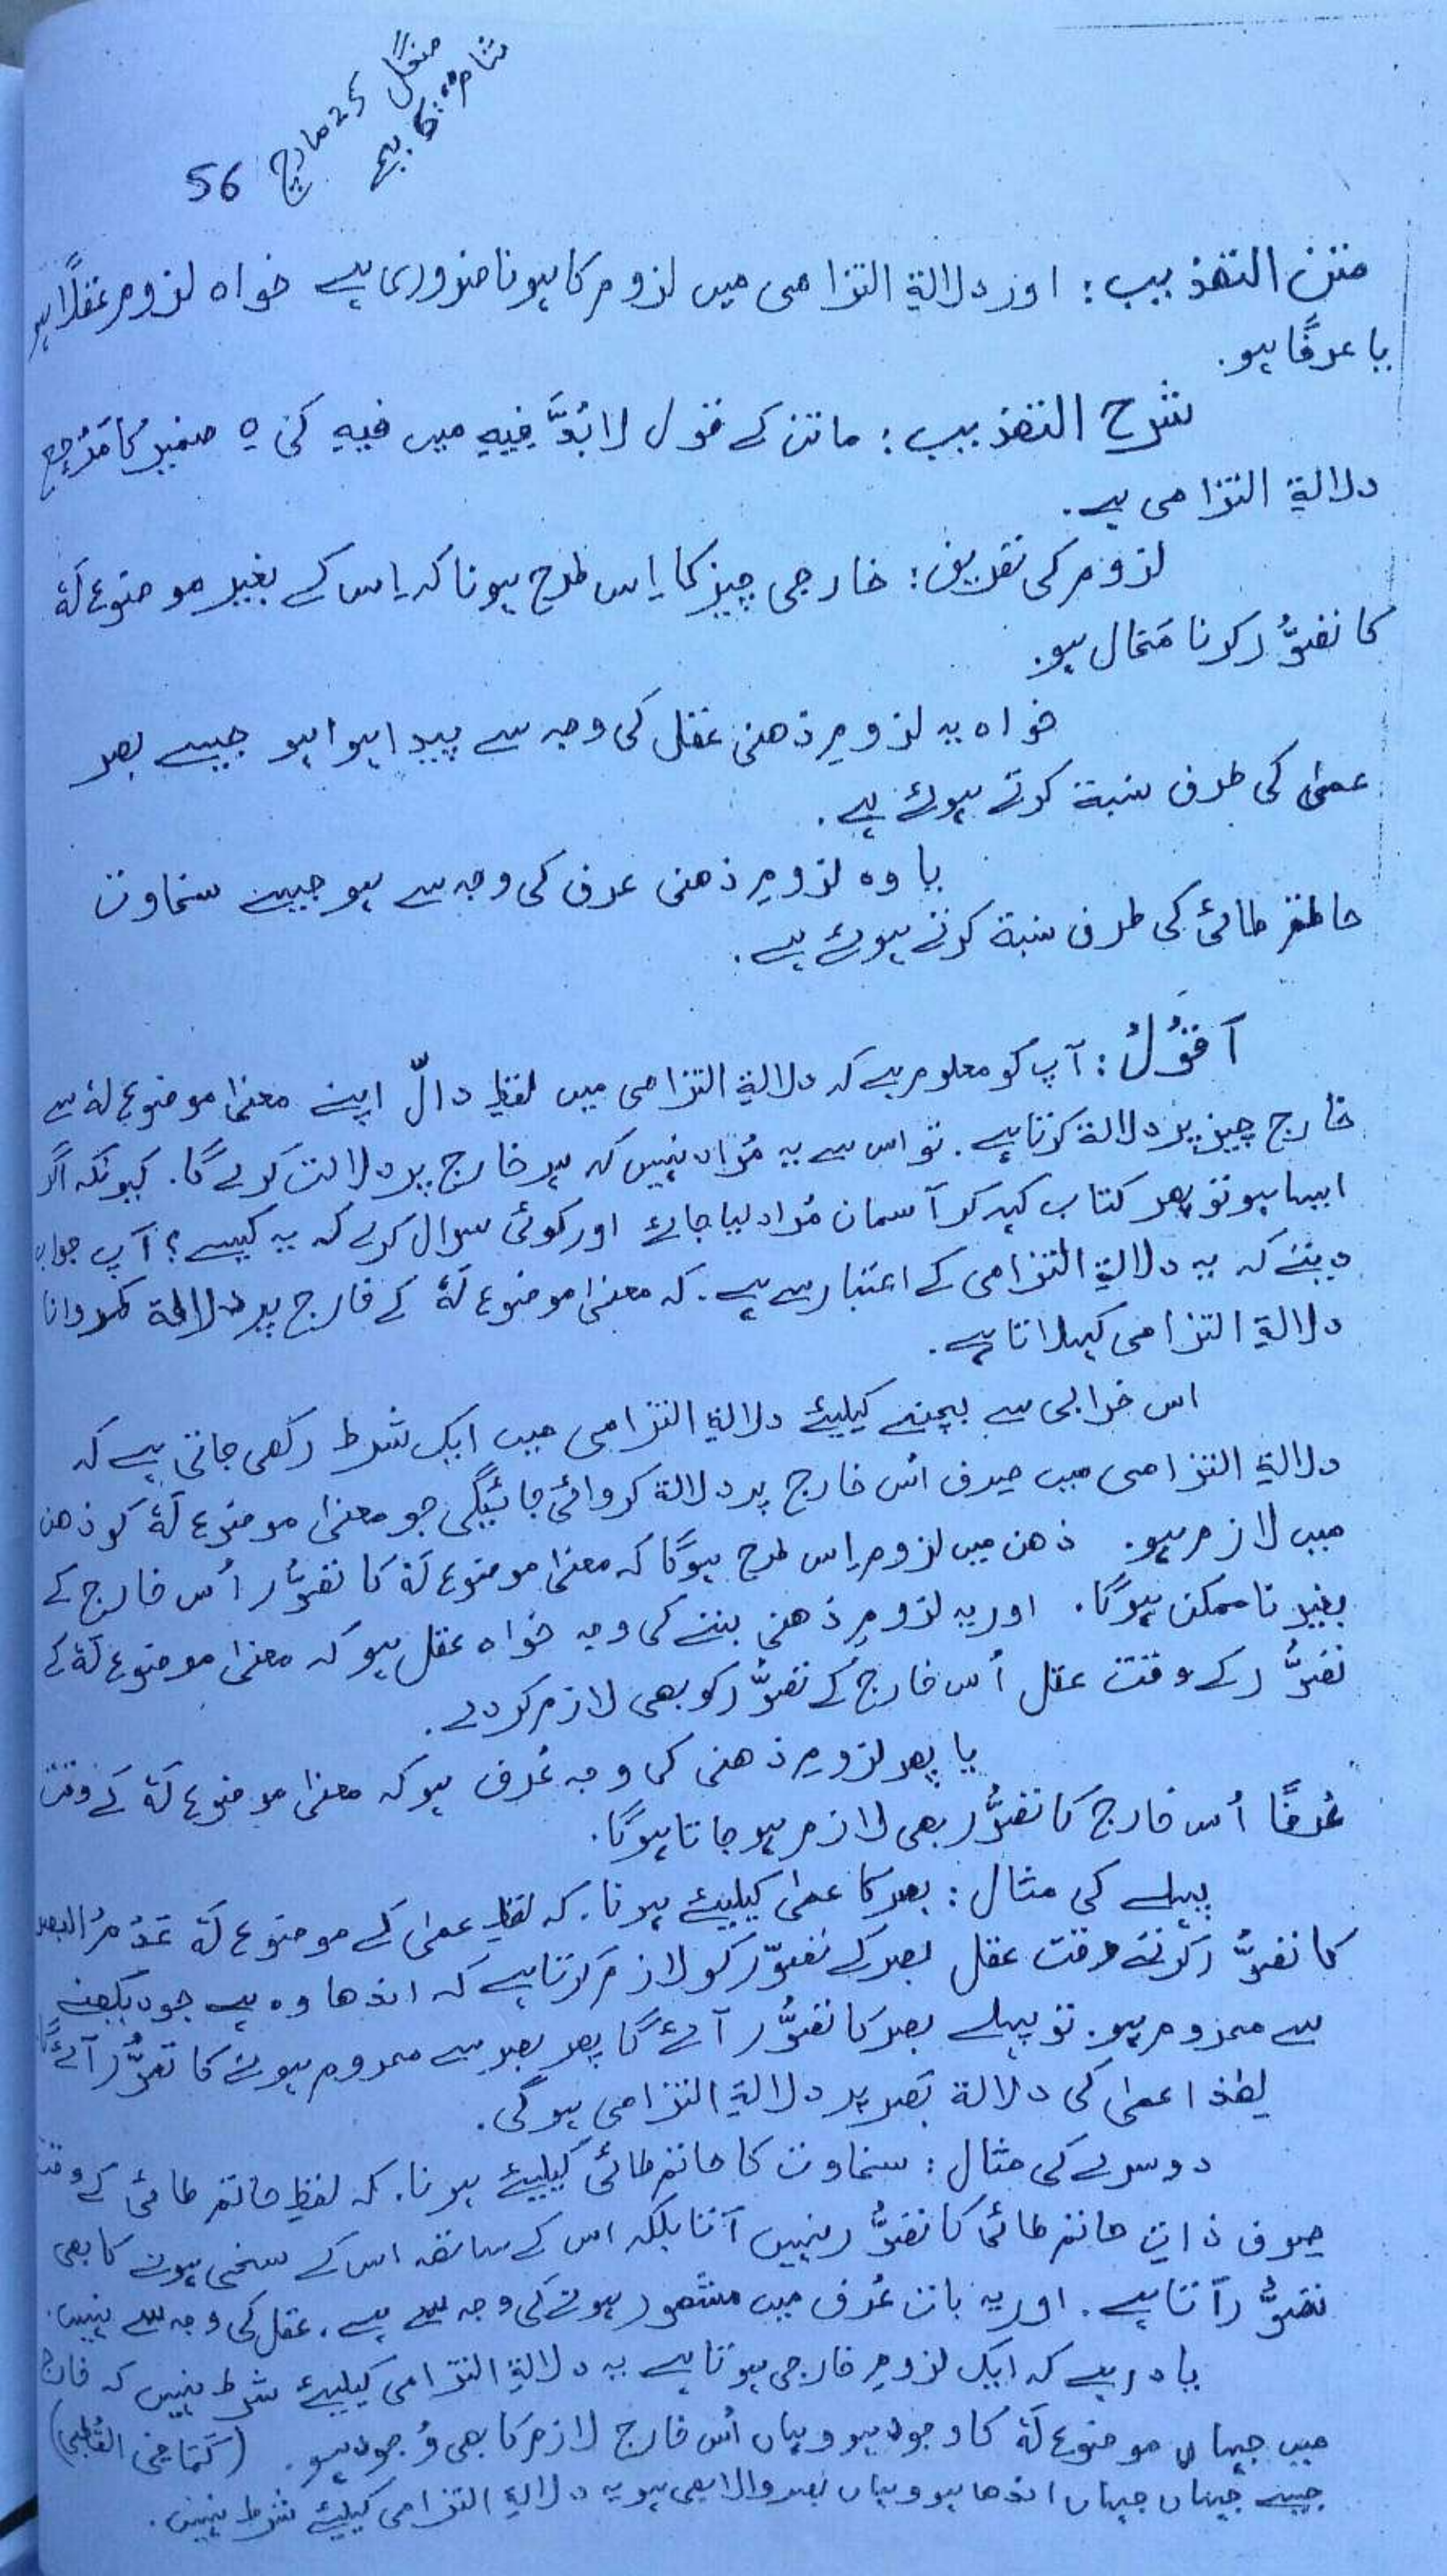 منگل 25 مارچ
شام 6:00 بجے
56
متن التھذیب: اور دلالۃِ التزامی میں لزوم کا ہونا ضروری ہے خواہ لزوم عقلاً ہو
یا عرفًا ہو.
شرح التھذیب: ماتن کے قول لا بُدَّ فِیہِ میں فیہِ کی ہ ضمیر کا مَرْجِع
دلالۃِ التزامی ہے.
لزوم کی تعریف: خارجی چیز کا اِس طرح ہونا کہ اِس کے بغیر موضوع لَہٗ
کا تصوُّر کرنا مَحَال ہو.
خواہ یہ لزومِ ذھنی عقل کی وجہ سے پیدا ہوا ہو جیسے بصر
عمیٰ کی طرف نسبۃ کرتے ہوئے ہے.
یا وہ لزومِ ذھنی عرف کی وجہ سے ہو جیسے سخاوت
حاطم طائی کی طرف نسبۃ کرتے ہوئے ہے.
اَقُوْلُ: آپ کو معلوم ہے کہ دلالۃِ التزامی میں لفظِ دالّ اپنے معنیٰ موضوع لہٗ سے
خارج چیز پر دلالۃ کرتا ہے. تو اس سے یہ مُراد نہیں کہ ہر خارج پر دلالت کرے گا. کیونکہ اگر
ایسا ہو تو پھر کتاب کہہ کر آسمان مُراد لیا جائے اور کوئی سوال کرے کہ یہ کیسے؟ آپ جواب
دینگے کہ یہ دلالۃِ التزامی کے اعتبار سے ہے. کہ معنیٰ موضوع لَہٗ کے خارج پر دلالۃ کروانا
دلالۃِ التزامی کہلاتا ہے.
اس خرابی سے بچنے کیلیئے دلالۃِ التزامی میں ایک شرط رکھی جاتی ہے کہ
دلالۃِ التزامی میں صرف اُس خارج پر دلالۃ کروائی جائیگی جو معنیٰ موضوع لَہٗ کو ذھن
میں لازم ہو. ذھن میں لزوم اِس طرح ہوگا کہ معنیٰ موضوع لَہٗ کا تصوُّر اُس خارج کے
بغیر ناممکن ہوگا. اور یہ لزومِ ذھنی بننے کی وجہ خواہ عقل ہو کہ معنیٰ موضوع لَہٗ کے
تصوُّر کے وقت عقل اُس خارج کے تصوُّر کو بھی لازم کر دے.
یا پھر لزومِ ذھنی کی وجہ عُرف ہو کہ معنیٰ موضوع لَہٗ کے وقت
عُرفًا اُس خارج کا تصوُّر بھی لازم ہو جاتا ہوگا.
پہلے کی مثال: بصر کا عمیٰ کیلیئے ہونا. کہ لفظِ عمیٰ کے موضوع لَہٗ عَدْمُ البصر
کا تصوُّر کرتے وقت عقل بصر کے تصوّر کو لازم کرتا ہے کہ اندھا وہ ہے جو دیکھنے
سے محروم ہو. تو پہلے بصر کا تصوُّر آئے گا پھر بصر سے محروم ہونے کا تصوُّر آئے گا
لھٰذا عمیٰ کی دلالۃ بَصر پر دلالۃِ التزامی ہوگی.
دوسرے کی مثال: سخاوت کا حاتم طائی کیلیئے ہونا. کہ لفظِ حاتم طائی کے وقت
صرف ذاتِ حاتم طائی کا تصوُّر نہیں آتا بلکہ اس کے ساتھ اس کے سخی ہونے کا بھی
تصوُّر آتا ہے. اور یہ بات عُرف میں مشھور ہونے کی وجہ سے ہے. عقل کی وجہ سے نہیں.
یاد رہے کہ ایک لزومِ خارجی ہوتا ہے یہ دلالۃِ التزامی کیلیئے شرط نہیں کہ خارج
میں جہاں موضوع لَہٗ کا وجود ہو وہاں اُس خارج لازم کا بھی وُجود ہو. (کَمَا فِی القُطبی)
جیسے جہاں جہاں اندھا ہو وہاں بصر والا بھی ہو یہ دلالۃِ التزامی کیلیئے شرط نہیں.